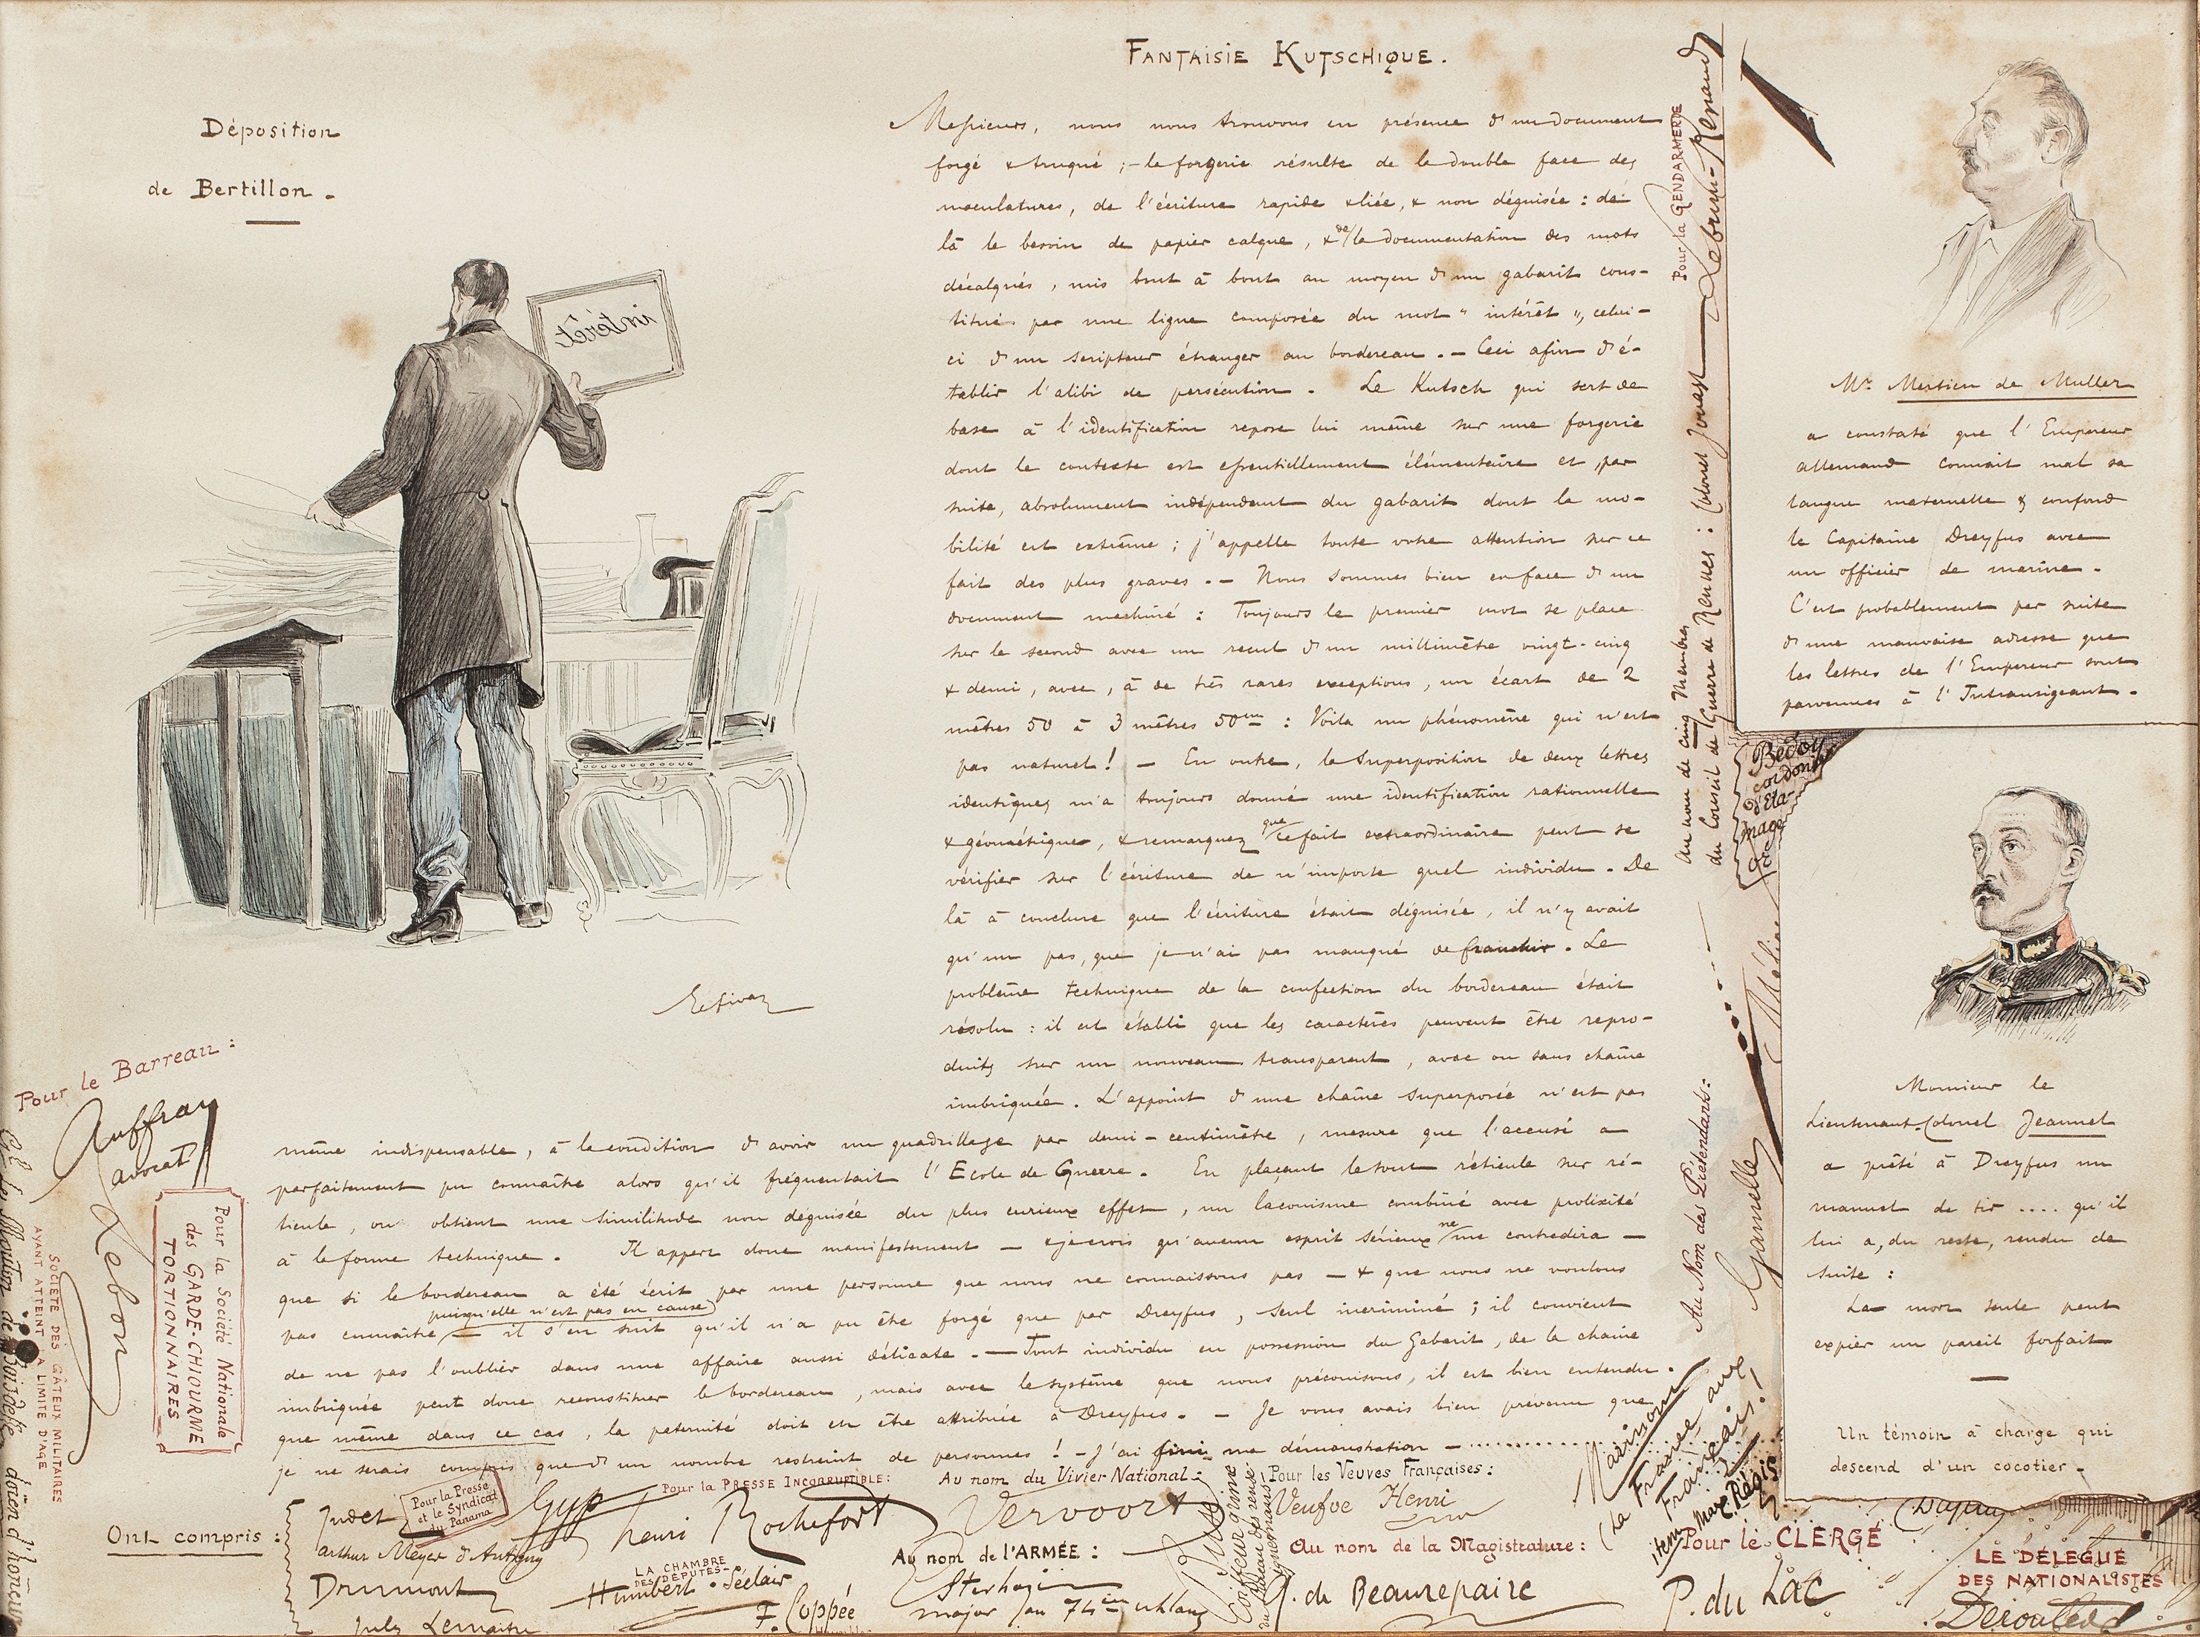 Déposition
de Bertillon.
intérêt
Estivaz
FANTAISIE KUTSCHIQUE.
Messieurs, nous nous trouvons en présence d'un document
forgé & truqué ; - la forgerie résulte de la double face des
maculatures, de l'écriture rapide & liée, & non déguisée : de
là le besoin de papier calque, & de la documentation des mots
décalqués, mis bout à bout au moyen d'un gabarit cons-
titué par une ligne composée du mot "intérêt", celui-
ci d'un scripteur étranger au bordereau. - Ceci afin d'é-
tablir l'alibi de persécution. Le Kutsch qui sert de
base à l'identification repose lui même sur une forgerie
dont le contexte est essentiellement élémentaire et, par
suite, absolument indépendant du gabarit dont la mo-
bilité est extrême ; j'appelle toute votre attention sur ce
fait des plus graves. - Nous sommes bien en face d'un
document machiné : Toujours le premier mot se place
sur le second avec un recul d'un millimètre vingt-cinq
& demi, avec, à de très rares exceptions, un écart de 2
mètres 50 à 3 mètres 50 : Voila un phénomène qui n'est
pas naturel ! - En outre, la superposition de deux lettres
identiques m'a toujours donné une identification rationnelle
& géométrique, & remarquez que ce fait extraordinaire peut se
vérifier sur l'écriture de n'importe quel individu. De
là à conclure que l'écriture était déguisée, il n'y avait
qu'un pas, que je n'ai pas manqué de franchir. Le
problème technique de la confection du bordereau était
résolu : il est établi que les caractères peuvent être repro-
duits sur un nouveau transparent, avec ou sans chaîne
imbriquée. L'appoint d'une chaîne superposée n'est pas
même indispensable, à la condition d'avoir un quadrillage par demi-centimètre, mesure que l'accusé a
parfaitement pu connaître alors qu'il fréquentait l'Ecole de Guerre. En plaçant le tout réticule sur ré-
ticule, on obtient une similitude non déguisée du plus curieux effet, un laconisme combiné avec prolixité
à la forme technique. Il appert donc manifestement - & je crois qu'aucun esprit sérieux ne me contredira -
que si le bordereau a été écrit par une personne que nous ne connaissons pas - & que nous ne voulons
pas connaître puisqu'elle n'est pas en cause - il s'en suit qu'il n'a pu être forgé que par Dreyfus, seul incriminé ; il convient
de ne pas l'oublier dans une affaire aussi délicate. - Tout individu en possession du Gabarit, de la chaine
imbriquée peut donc reconstituer le bordereau, mais avec le système que nous préconisons, il est bien entendu.
que même dans ce cas, la paternité doit en être attribuée à Dreyfus. - Je vous avais bien prévenu que
je ne serais compris que d'un nombre restreint de personnes ! - J'ai fini ma démonstration -
Mr. Mertian de Muller
a constaté que l'Empereur
allemand connait mal sa
langue maternelle & confond
le Capitaine Dreyfus avec
un officier de marine.
C'est probablement par suite
d'une mauvaise adresse que
les lettres de l'Empereur sont
parvenues à l'Intransigeant.
Monsieur le
Lieutenant-Colonel Jeannel
a prêté à Dreyfus un
manuel de tir .... qu'il
lui a, du reste, rendu de
suite :
La mort seule peut
expier un pareil forfait
Un témoin à charge qui
descend d'un cocotier.
Pour la GENDARMERIE
Lebrun-Renaud
au nom de cinq Membres
du Conseil de Guerre de Rennes : Colonel Jouaust
Bedoy
cordon
d'Eta-
mage
Méline
Au Nom des Prétendants :
Gamelle
Pour le Barreau :
Auffray
avocat
Lebon
Pour la Société Nationale
des GARDE-CHIOURME
TORTIONNAIRES
SOCIÉTÉ DES GATEUX MILITAIRES
AYANT ATTEINT LA LIMITE D'AGE
Gl. Le Mouton de Boisdeffre
Ont compris :
Judet
Pour la Presse
et le Syndicat
du Panama
Arthur Meyer
Drumont
Jules Lemaitre
Gyp
Pour la PRESSE INCORRUPTIBLE :
Henri Rochefort
LA CHAMBRE
DES DÉPUTÉS
Humbert
F. Coppée
Au nom du Vivier National :
Vervoort
Au nom de l'ARMÉE :
Sterhazi
major au 74e uhlans
Pour les Veuves Françaises :
Veufve Henri
Au nom de la Magistrature :
Q. de Beaurepaire
La France aux
Français !
item Max Régis
Pour le CLERGÉ
P. du Lac
Dupuy
LE DÉLÉGUÉ
DES NATIONALISTES
Déroulède